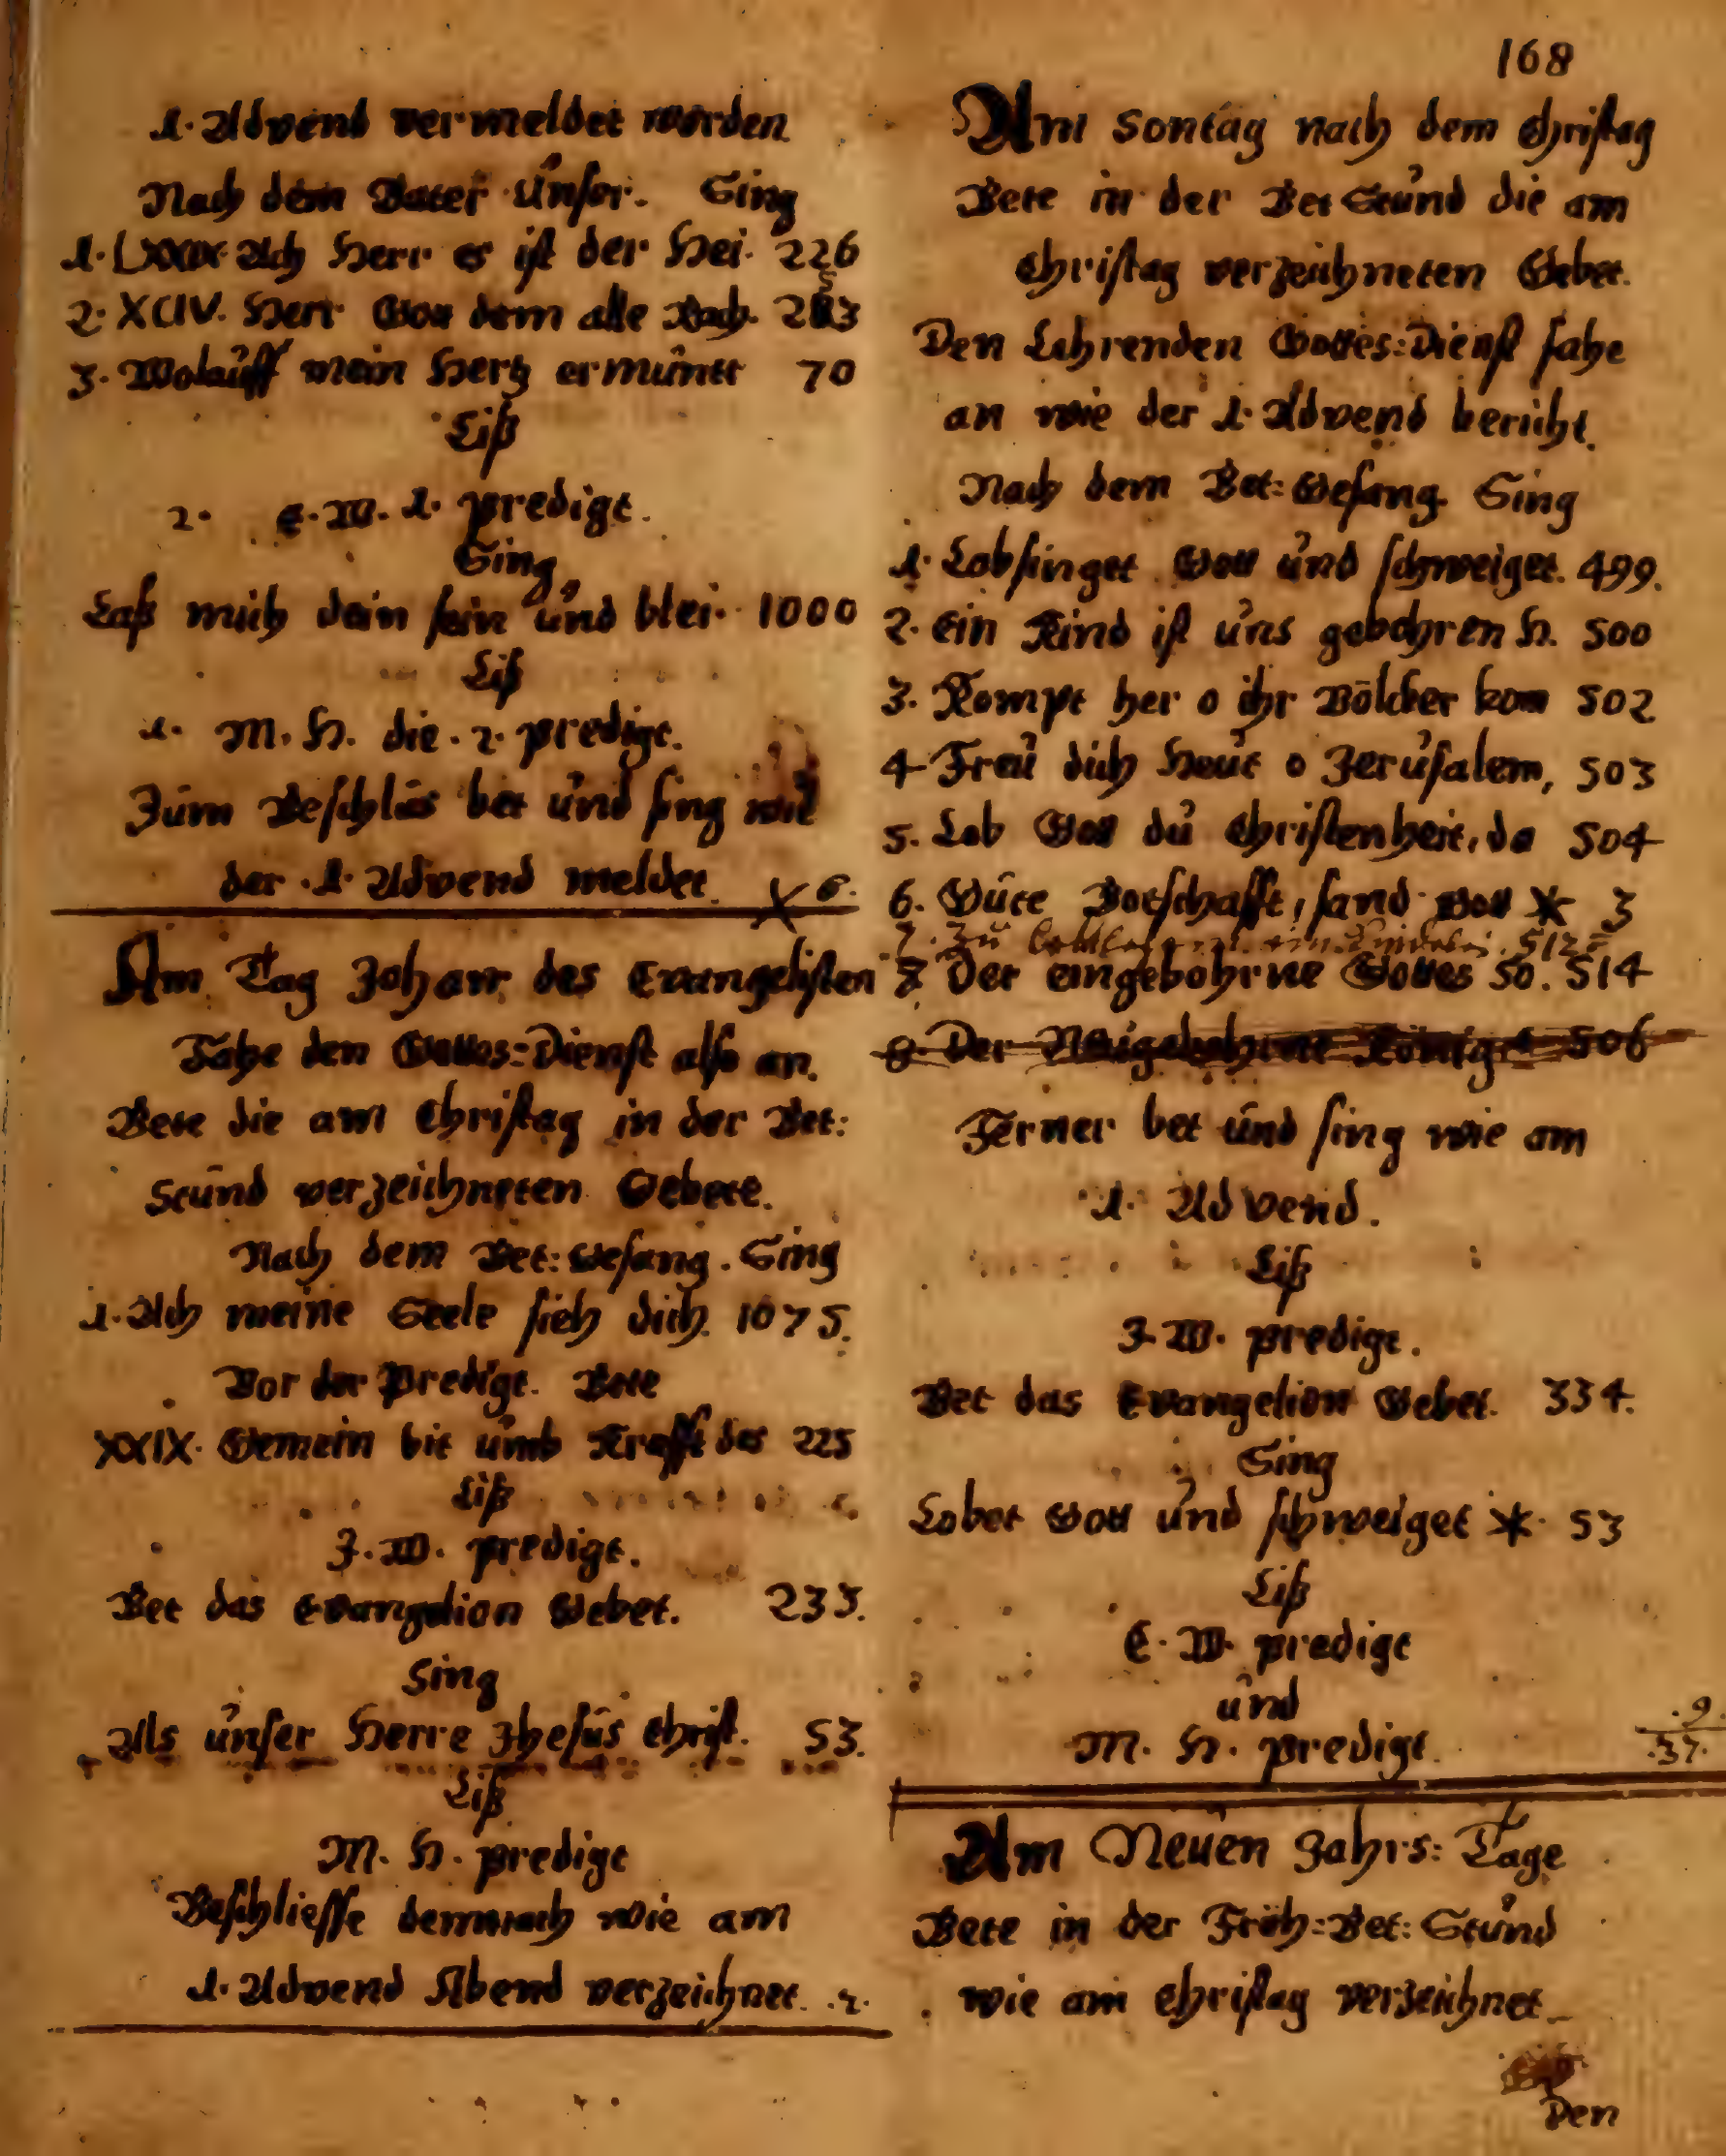 1. Advend vermeldet worden.
Nach dem Vater Unser. Sing
1. LXXIX Ach Herr es ist der Hei. 226
2. XCIV. Herr Gott dem alle Rach. 253
3. Wolauff mein Hertz ermuntr 70
Liß
2. E. W. 1. predigt.
Sing,
Laß mich dein sein und blei. 1000
Liß
1. M. H. die. 2. predigt.
Zum Beschlus bet und sing wie
der. 1. Advend meldet. X 6.
Am Tag Johann des Evangelisten
Fahe den Gottes=Dienst also an.
Bete die am Christag in der Bet:
Stund verzeichneten Gebete.
Nach dem Bet: Gesang. Sing
1. Ach meine Seele sieh dich. 1075.
Vor der Predigt. Bete
XXIX. Gemein bit umb Krafft des 225
Liß
J. W. predigt.
Bet das Evangelion Gebet. 233.
Sing
Als unser Herre Jhesus Christ. 53.
Liß
M. H. predigt
Beschliesse demnach wie am
1. Advend Abend verzeichnet. .2.
168
Am Sontag nach dem Christag
Bete in der Bet Stund die am
Christag verzeichneten Gebet.
Den Lehrenden Gottes=Dienst fahe
an wie der 1. Advend bericht.
Nach dem Bet: Gesang. Sing
1. Lobsinget Gott und schweiget. 499.
2. Ein Kind ist uns gebohren H. 500
3. Kompt her o ihr Völcker kom 502
4 Freu dich Heut o Jerusalem, 503
5. Lob Gott du Christenheit, da 504
6. Gute Botschafft, sand Gott * 3
7. Zu ein Kindelei. 512
8 Der eingebohrne Gottes So. 514
8. Der Neugebohrne König 506
Ferner bet und sing wie am
1. Advend.
Liß
J. W. predigt.
Bet das Evangelion Gebet. 334.
Sing
Lobet Gott und schweiget * 53
Liß
E. W. predigt
und
M. H. predigt.
.9.
.37.
Am Neuen Jahrs: Tage
Bete in der Früh=Bet: Stund
wie am Christag verzeichnet
Den